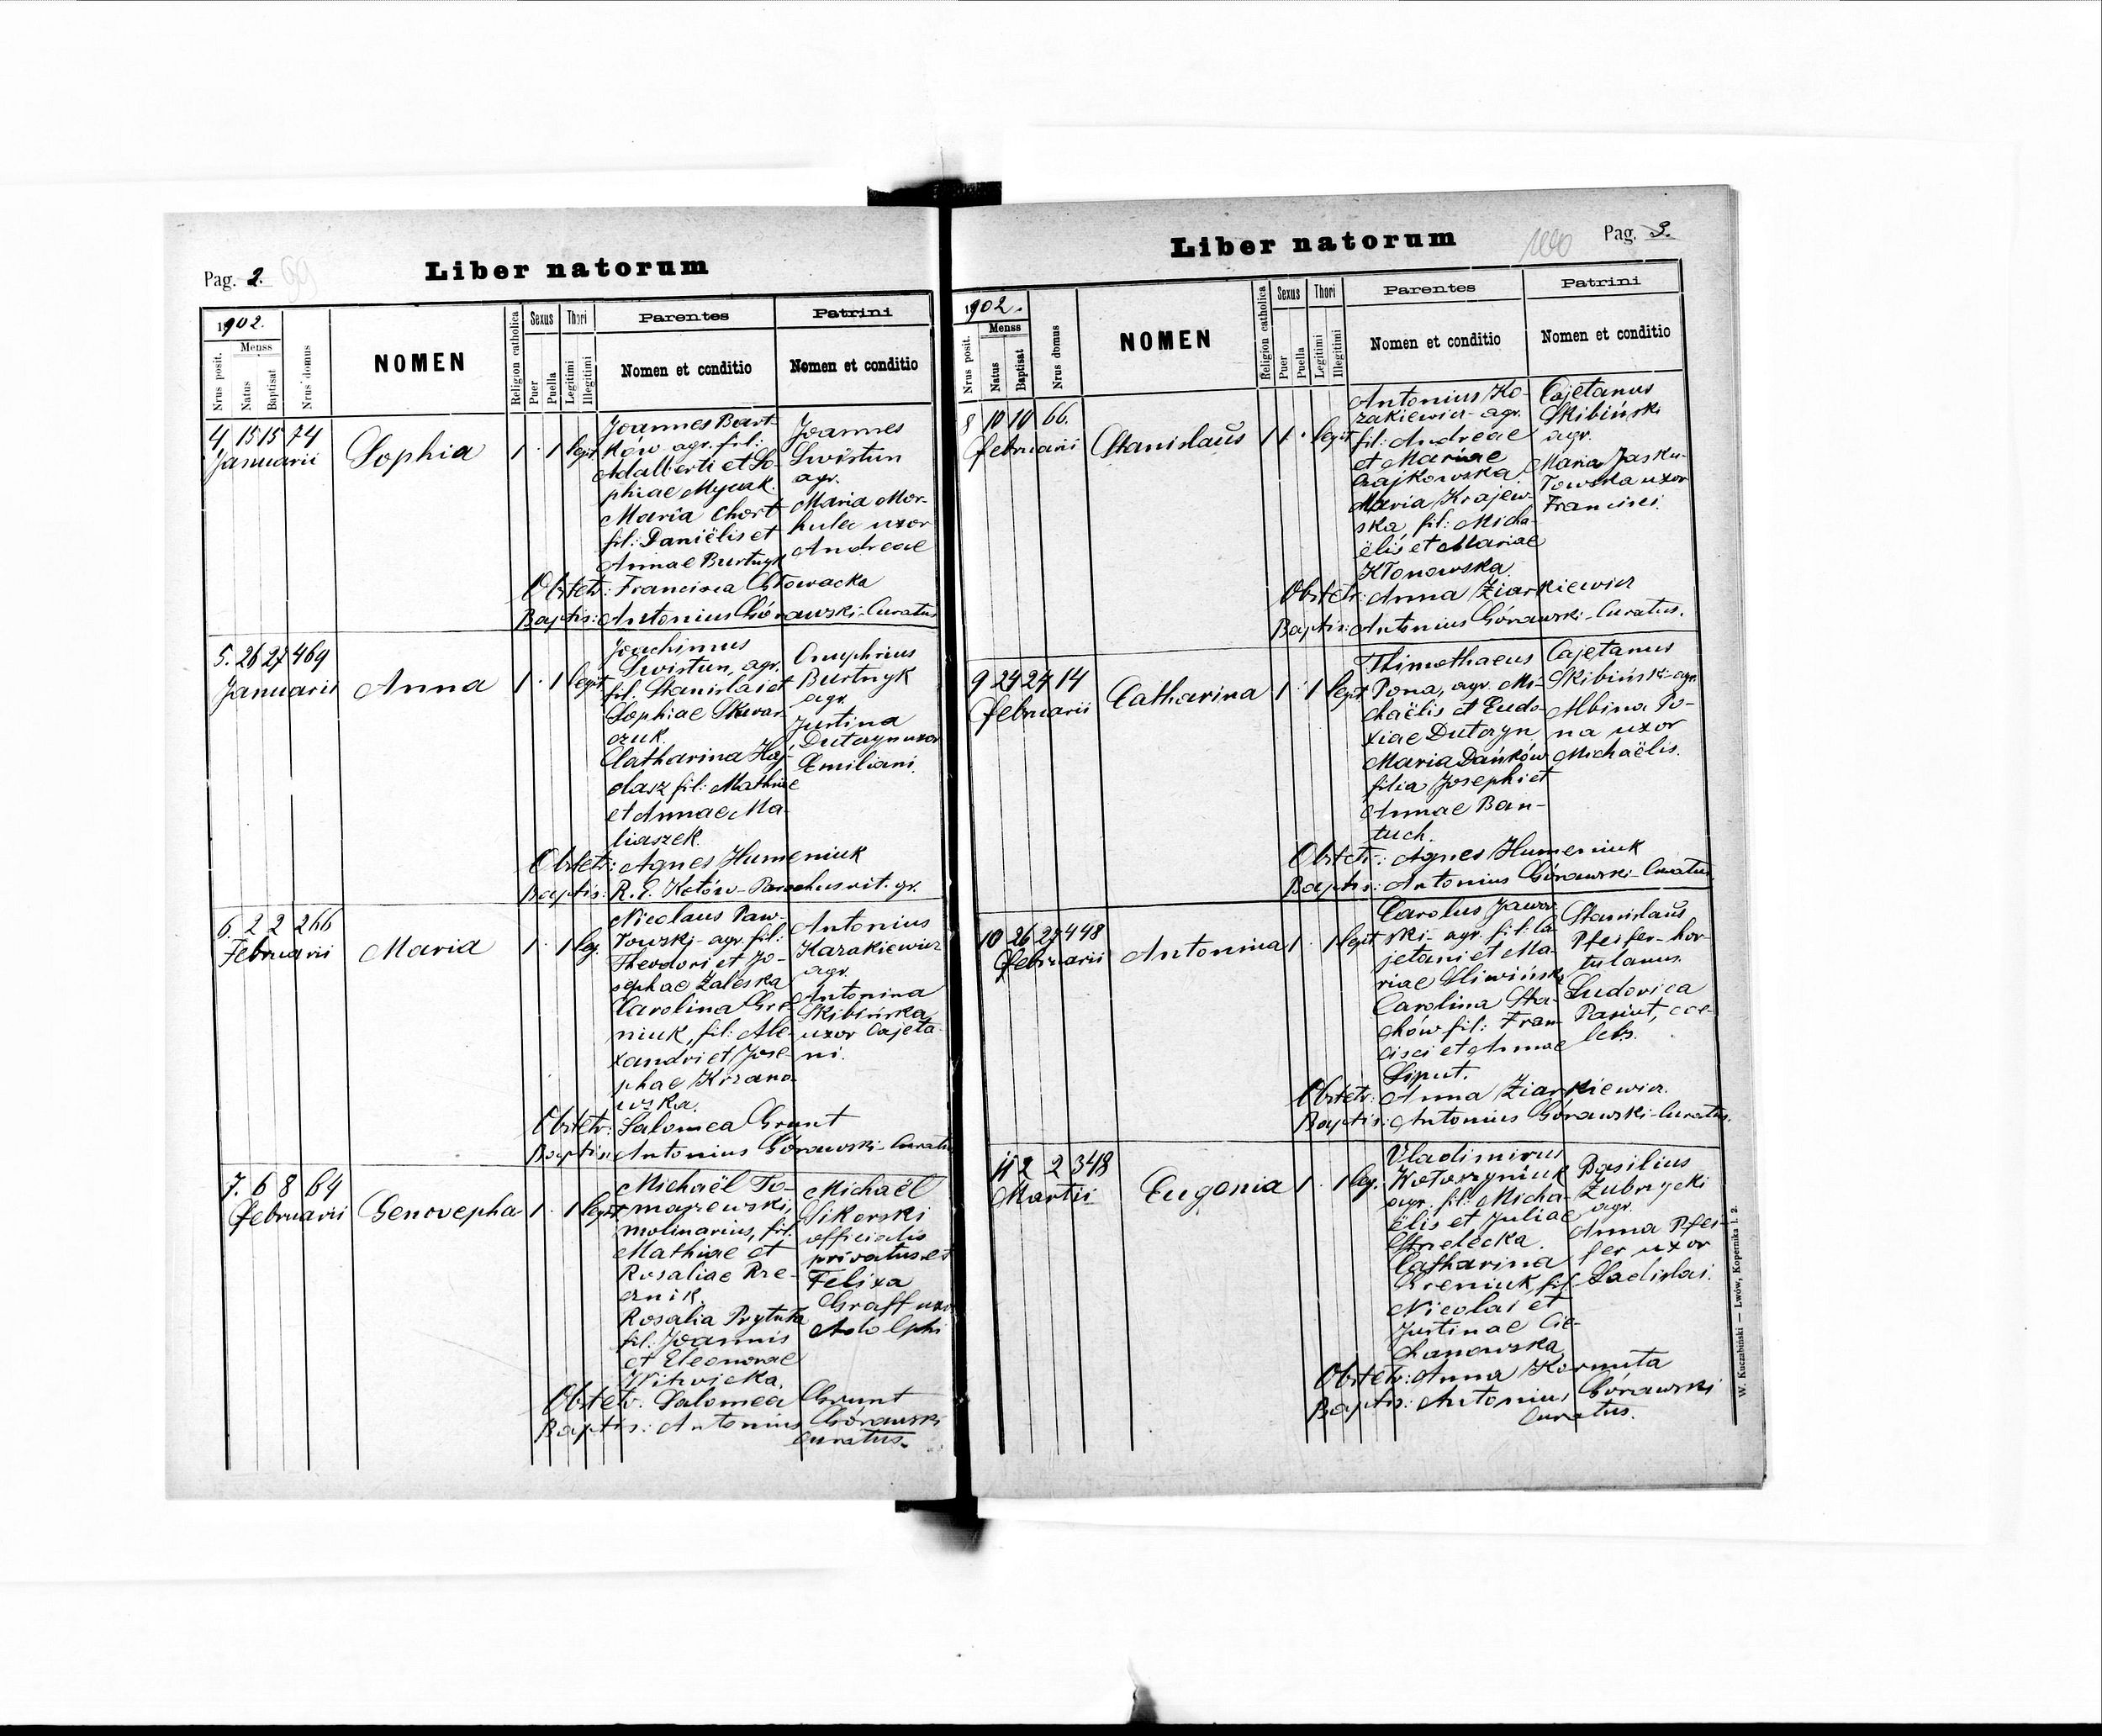 Pag. 2.
99
Liber natorum
1902.
Menss
Nrus posit.
Natus
Baptisat
Nrus domus
NOMEN
Religion catholica
Sexus
Puer
Puella
Thori
Legitimi
Illegitimi
Parentes
Nomen et conditio
Patrini
Nomen et conditio
4 15 15 74
Januarii
Sophia
1 · 1 legit
Joannes Bart-
ków agr. fil:
Adalberti et So-
phiae Mycak.
Maria Chort
fil: Daniëlis et
Annae Burtnyk
Joannes
Swistun
agr.
Maria Mor-
hulec uxor
Andreae
Obstetr: Francisca Głowacka
Baptis: Antonius Górawski-Curatus
5. 26 27 469
Januarii
Anna
1 · 1 legit
Joachimus
Swistun, agr.
fil. Stanislai et
Sophiae Skwar-
czuk.
Catharina Haj-
dasz fil: Mathiae
et Annae Ma-
liaszek.
Onuphrius
Burtnyk
agr.
Justina
Dutczyn uxor
Emiliani.
Obstetr: Agnes Humeniuk
Baptis: R. E. Kotów-Parochus rit. gr.
6. 2 2 266
Februarii
Maria
1 · 1 leg.
Nicolaus Paw-
łowski-agr. fil:
Theodori et Jo-
sephae Zaleska
Carolina Gre-
niuk, fil: Ale-
xandri et Jose-
phae Krzano-
wska.
Antonius
Kazakiewicz
agr.
Antonina
Skibińska
uxor Cajeta-
ni.
Obstetr: Salomea Grunt
Baptis: Antonius Górawski-Curatus
7. 6 8 64
Februarii
Genovepha
1 · 1 legit
Michaël To-
maszewski,
molinarius, fil.
Mathiae et
Rosaliae Rze-
źnik.
Rosalia Prytuła
fil: Joannis
et Eleonorae
Witwicka.
Michaël
Sikorski
officialis
privatus et
Felixa
Graff uxor
Adolphi
Obstetr. Salomea Grunt
Baptis: Antonius Górawski
Curatus.
Liber natorum
100
Pag. 3.
1902.
Menss
Nrus posit.
Natus
Baptisat
Nrus domus
NOMEN
Religion catholica
Sexus
Puer
Puella
Thori
Legitimi
Illegitimi
Parentes
Nomen et conditio
Patrini
Nomen et conditio
8 10 10 66.
Februarii
Stanislaus
1 1 · legit
Antonius Ko-
zakiewicz-agr.
fil: Andreae
et Mariae
Czajkowska.
Maria Krajew-
ska, fil: Micha-
ëlis et Mariae
Kłonowska.
Cajetanus
Skibiński
agr.
Maria Jasku-
łowska uxor
Francisci.
Obstetr: Anna Ziarkiewicz
Baptis: Antonius Górawski-Curatus.
9 24 24 14
Februarii
Catharina
1 · 1 legit
Thimothaeus
Pona, agr. Mi-
chaëlis et Eudo-
xiae Dutczyn
Maria Dańków
filia Josephi et
Annae Ban-
tuch.
Cajetanus
Skibiński-agr
Albina Po-
na uxor
Michaëlis.
Obstetr: Agnes Humeniuk
Baptis: Antonius Górawski-Curatus
10 26 27 448
Februarii
Antonina
1 · 1 legit
Carolus Jawor-
ski-agr. fil: Ca-
jetani et Ma-
riae Sliwińska
Carolina Sta-
chów fil: Fran-
cisci et Annae
Siput.
Stanislaus
Pfeifer-hor-
tulanus.
Ludovica
Pasiut, coe-
lebs.
Obstetr: Anna Ziarkiewicz.
Baptis: Antonius Górawski-Curatus.
11 2 2 348
Martii
Eugenia
1 · 1 leg.
Vladimirus
Wołoszyniuk
agr. fil: Micha-
ëlis et Juliae
Strzelecka.
Catharina
Greniuk, fil.
Nicolai et
Justinae Cie-
chanowska
Basilius
Zubrzycki
agr.
Anna Pfei-
fer uxor
Ladislai.
Obstetr: Anna Kormuta
Baptis: Antonius Górawski
Curatus.
W. Kuczabiński — Lwów, Kopernika l. 2.